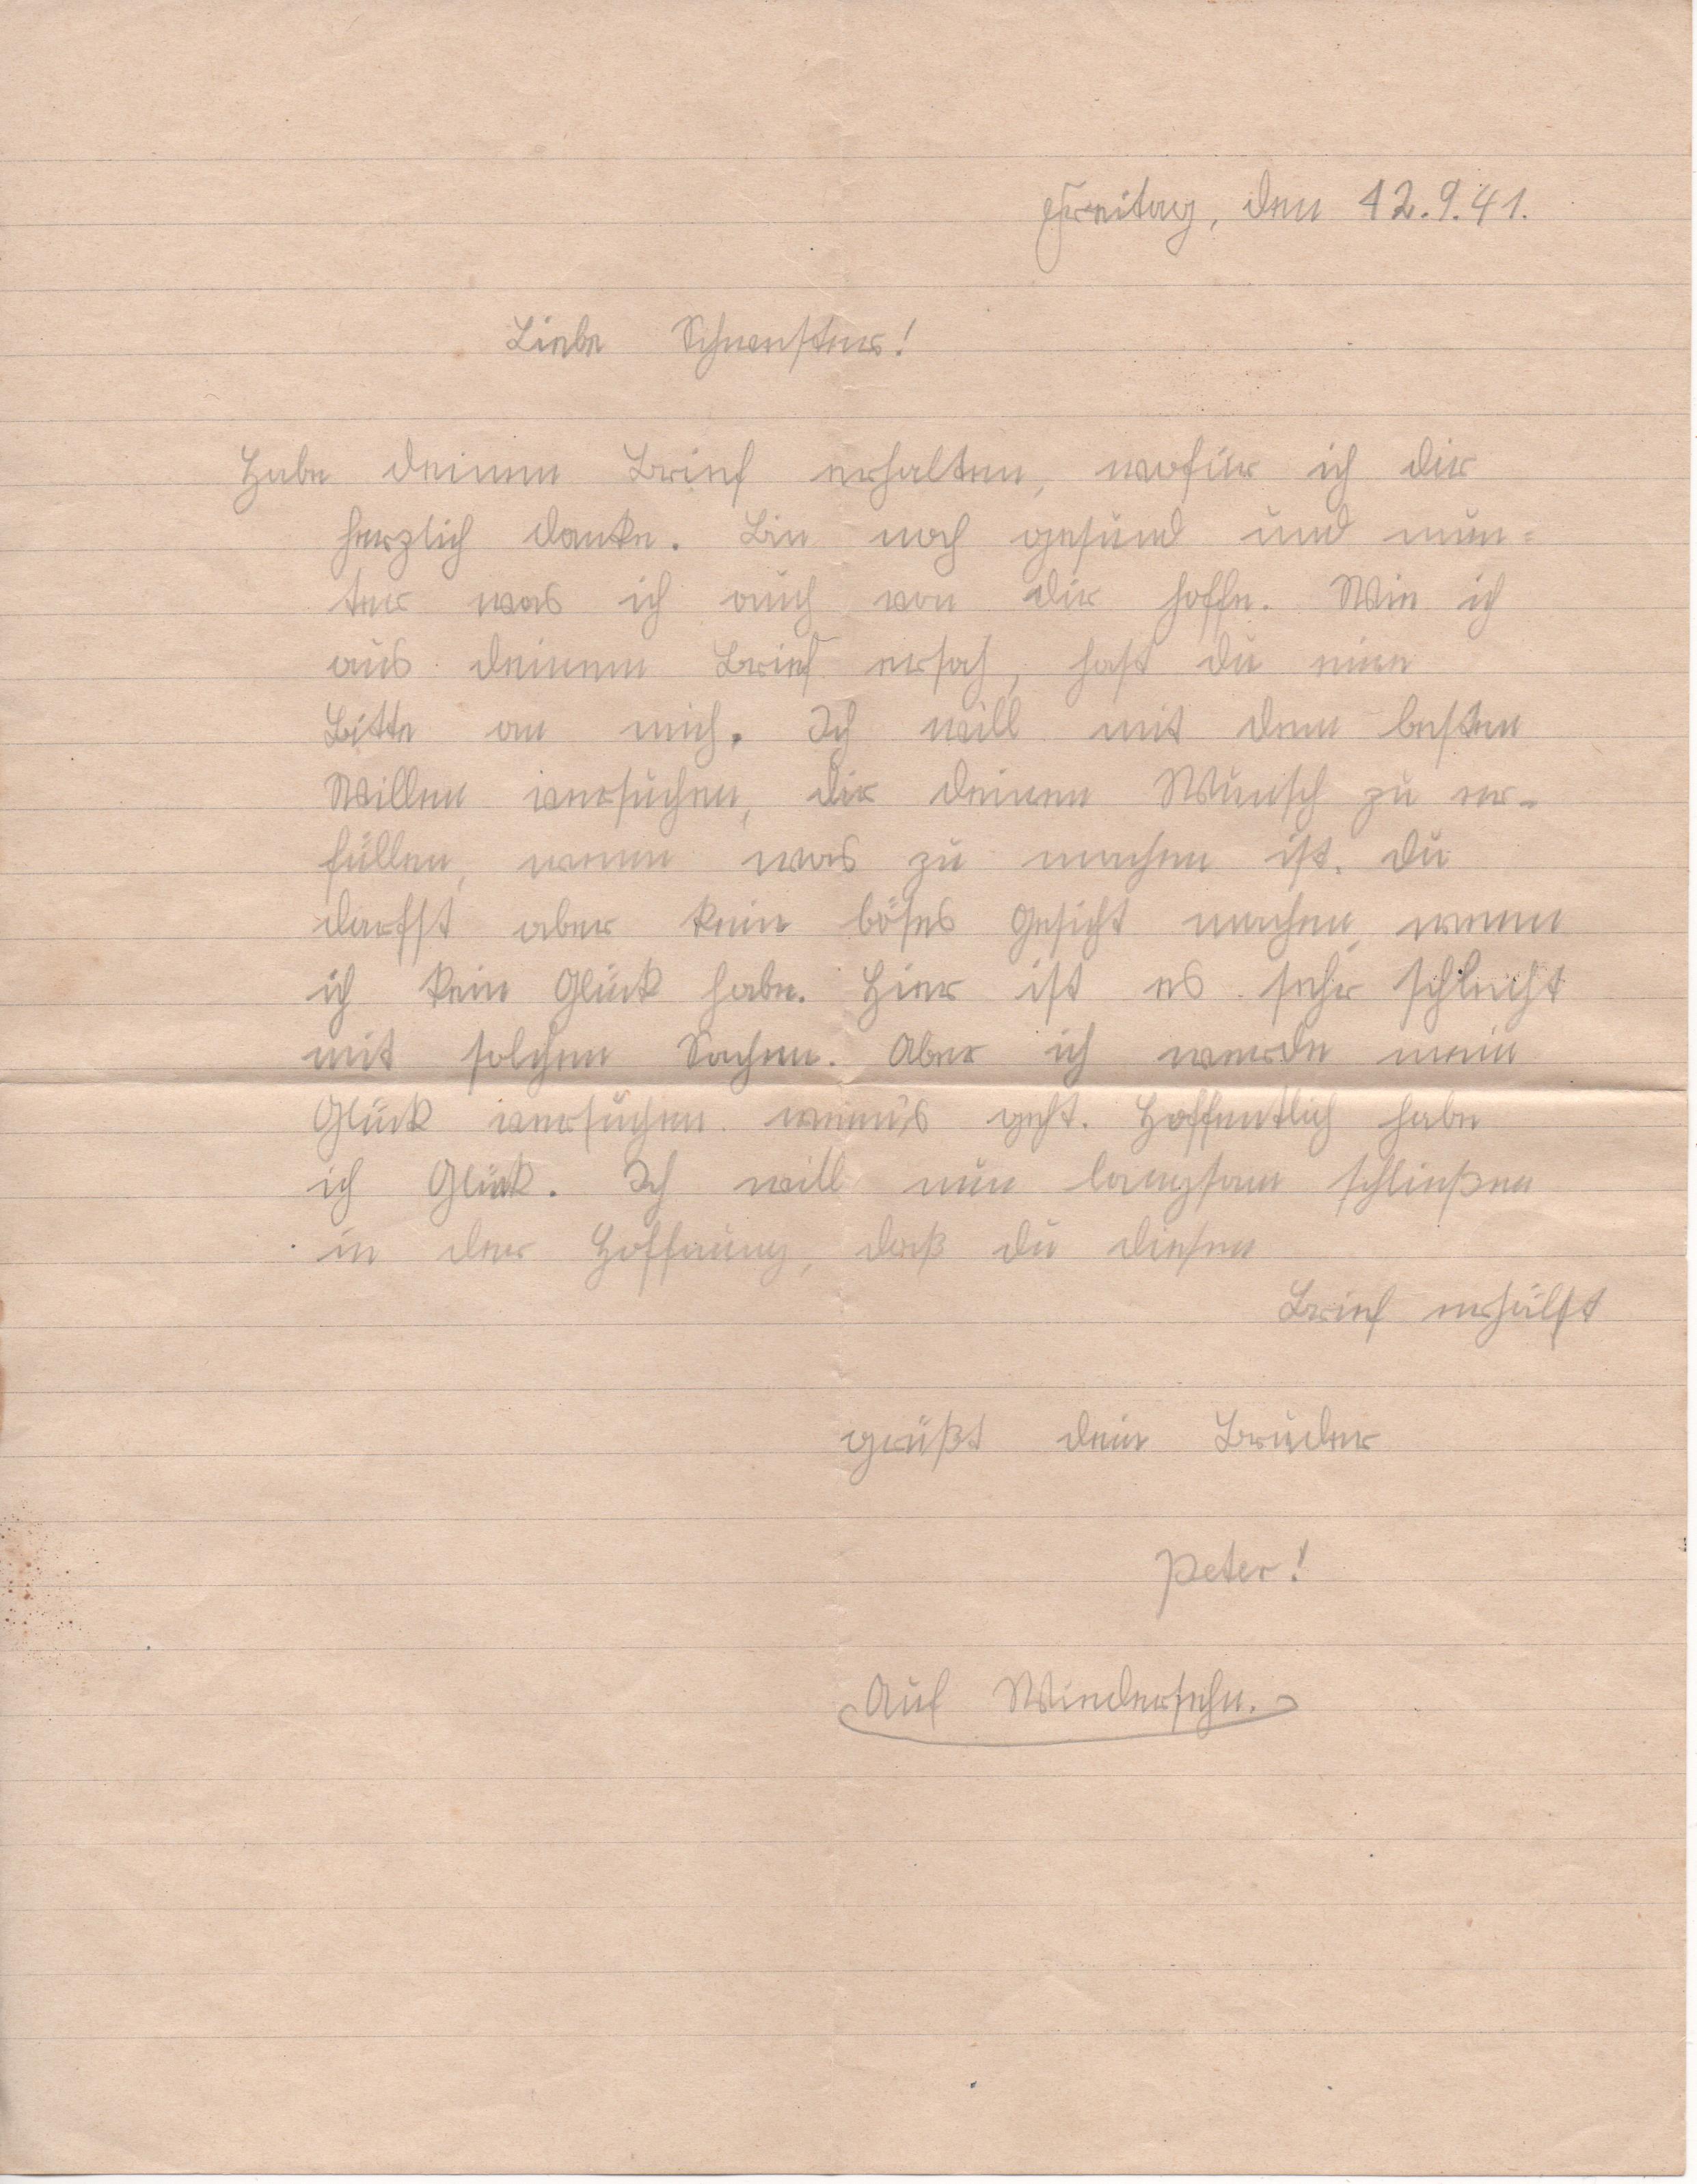 Freitag, den 12.9.41.
Liebe Schwester!
Habe deinen Brief erhalten, wofür ich dir
herzlich danke. Bin noch gesund und mun=
ter was ich auch von dir hoffe. Wie ich
aus deinem Brief ersah, hast du eine
Bitte an mich. Ich will mit dem besten
Willen versuchen, dir deinen Wunsch zu er-
füllen, wenn was zu machen ist. Du
darfst aber kein böses Gesicht machen, wenn
ich kein Glück habe. Hier ist es sehr schlecht
mit solchen Sachen. Aber ich werde mein
Glück versuchen wenn's geht. Hoffentlich habe
ich Glück. Ich will nun langsam schließen
in der Hoffnung, daß du diesen
Brief erhälst
grüßt dein Bruder
Peter!
Auf Wiedersehn.